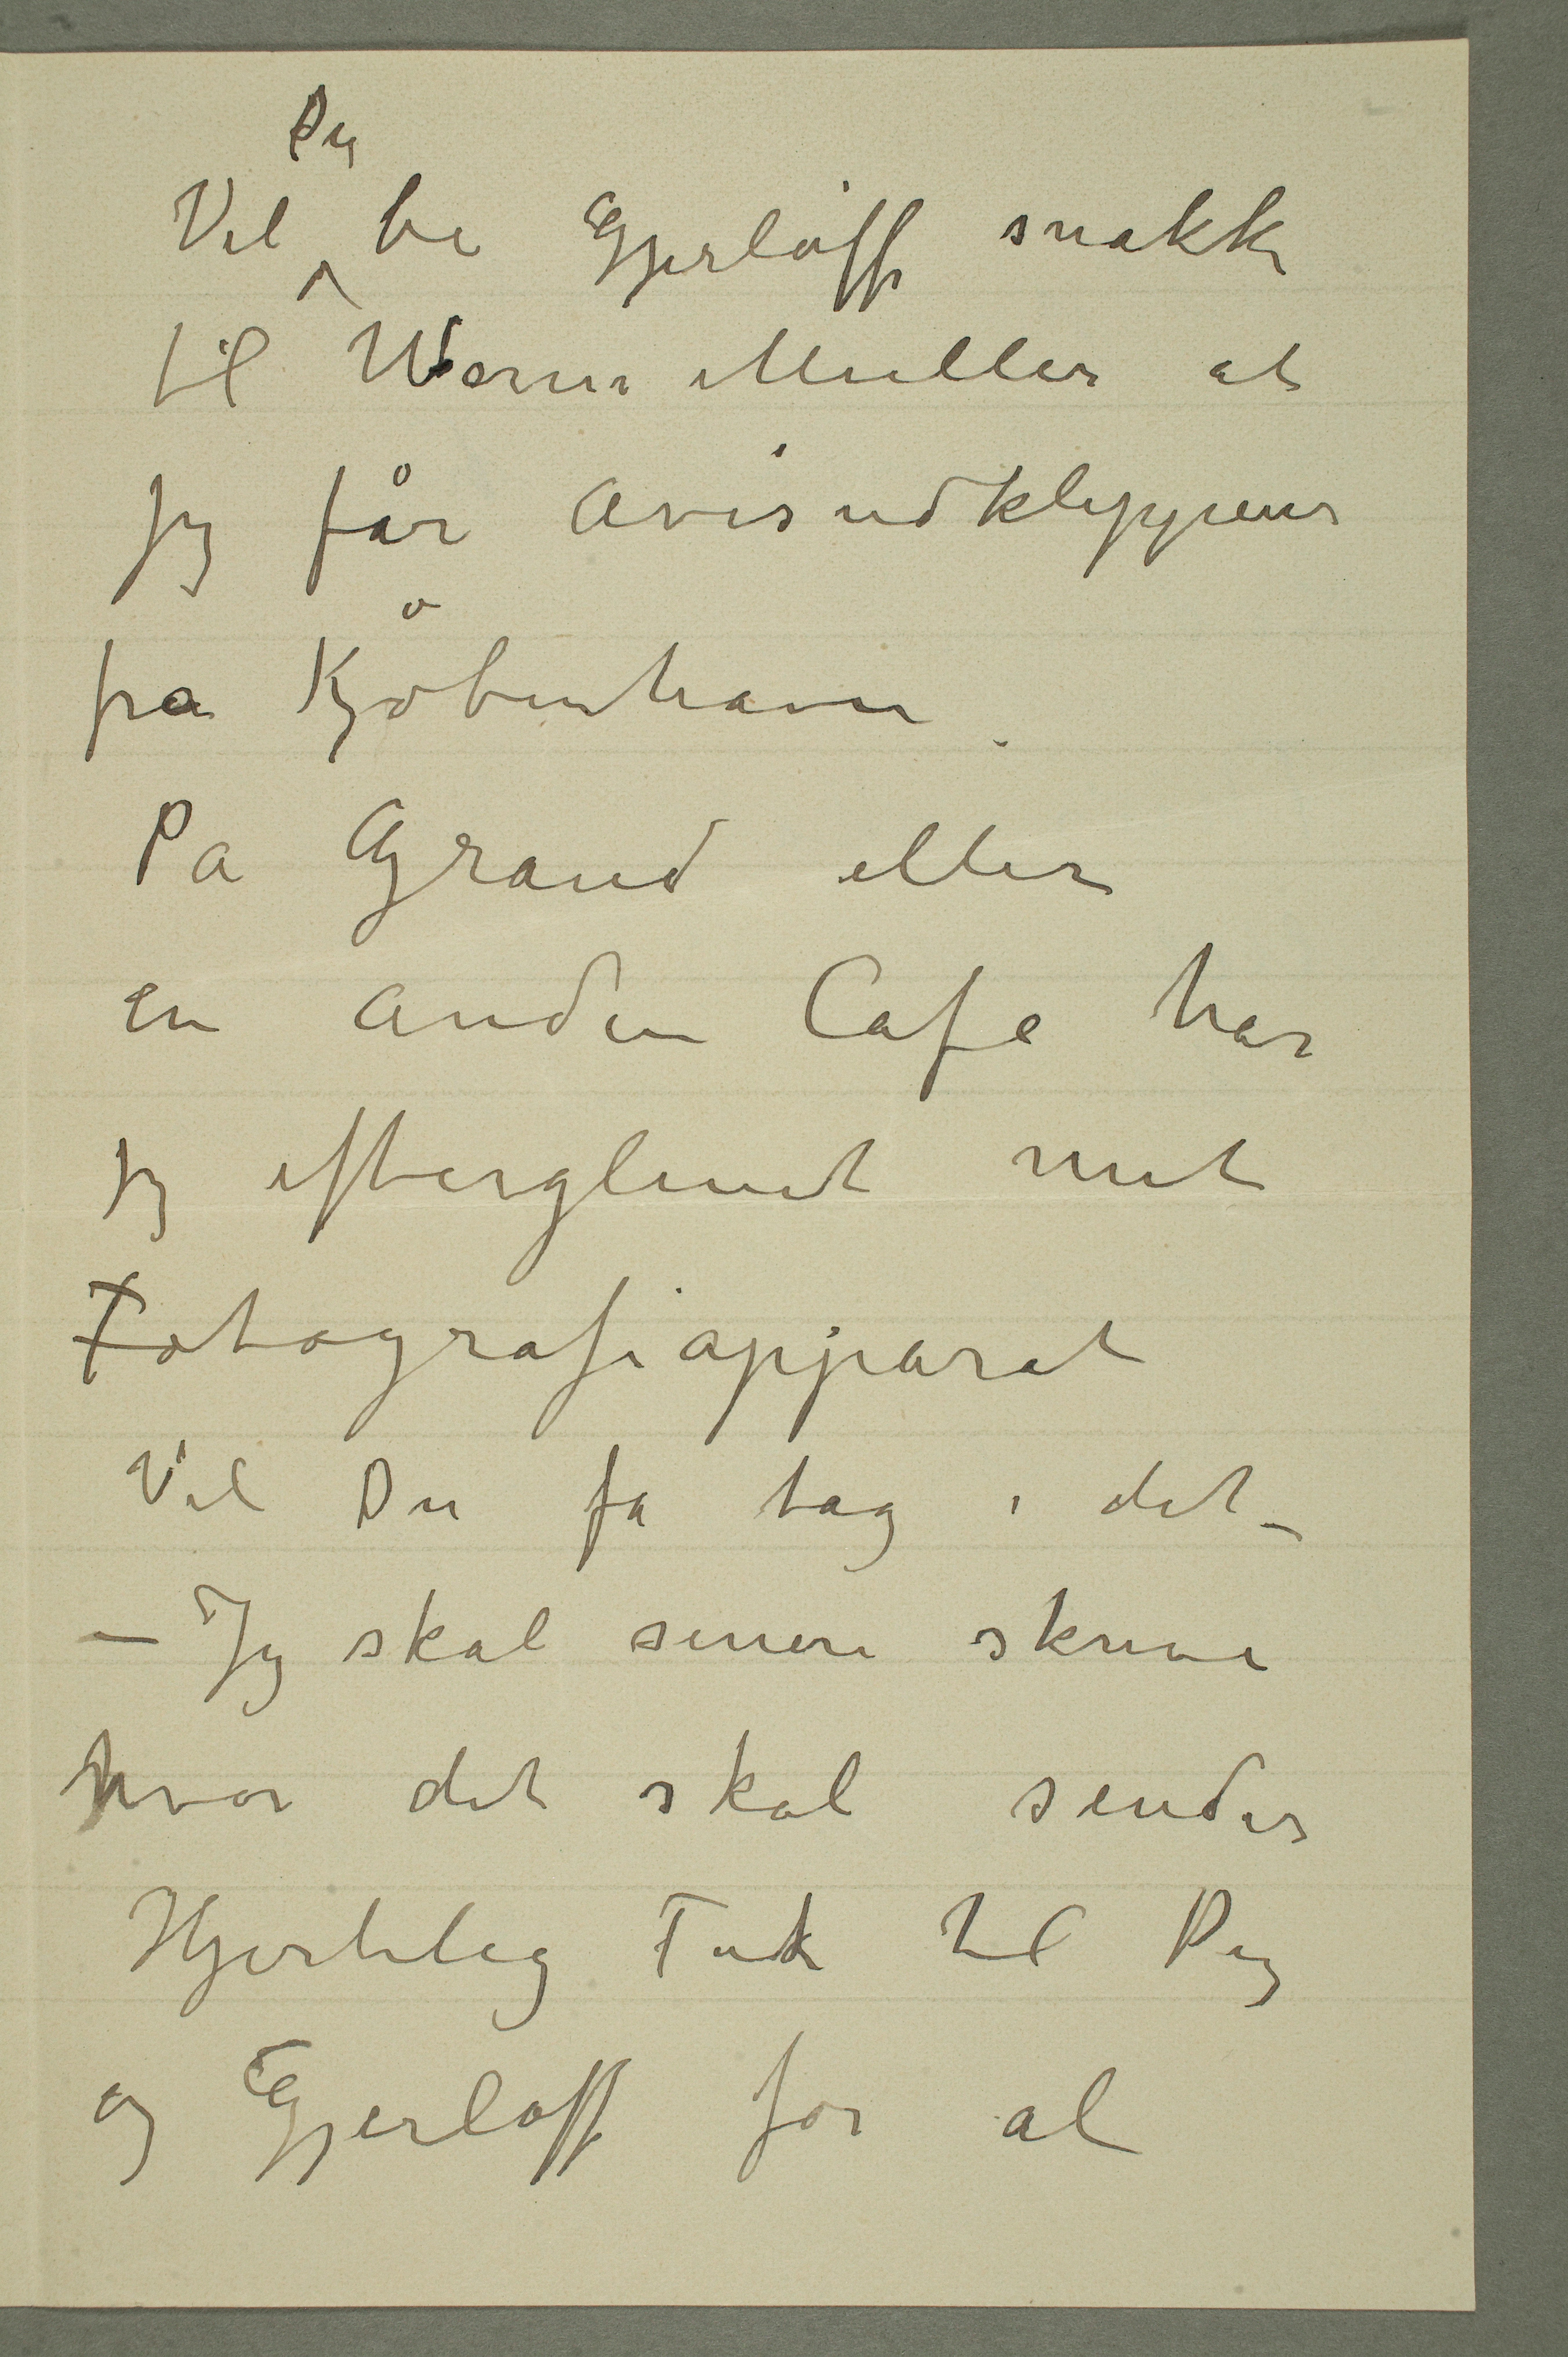 Dy
Vil be Gjerløff snakke
til Werne Muller at
jeg får avisudklippene
fra Kjøbenhavn.
På Grand eller
en anden Cafe har
jeg efterglemt mit
Fotografiapparat
Vil Du få tag i det –
– Jeg skal senere skrive
hvor det skal sendes
Hjertelig Tak til Dig
og Gjerløff for al